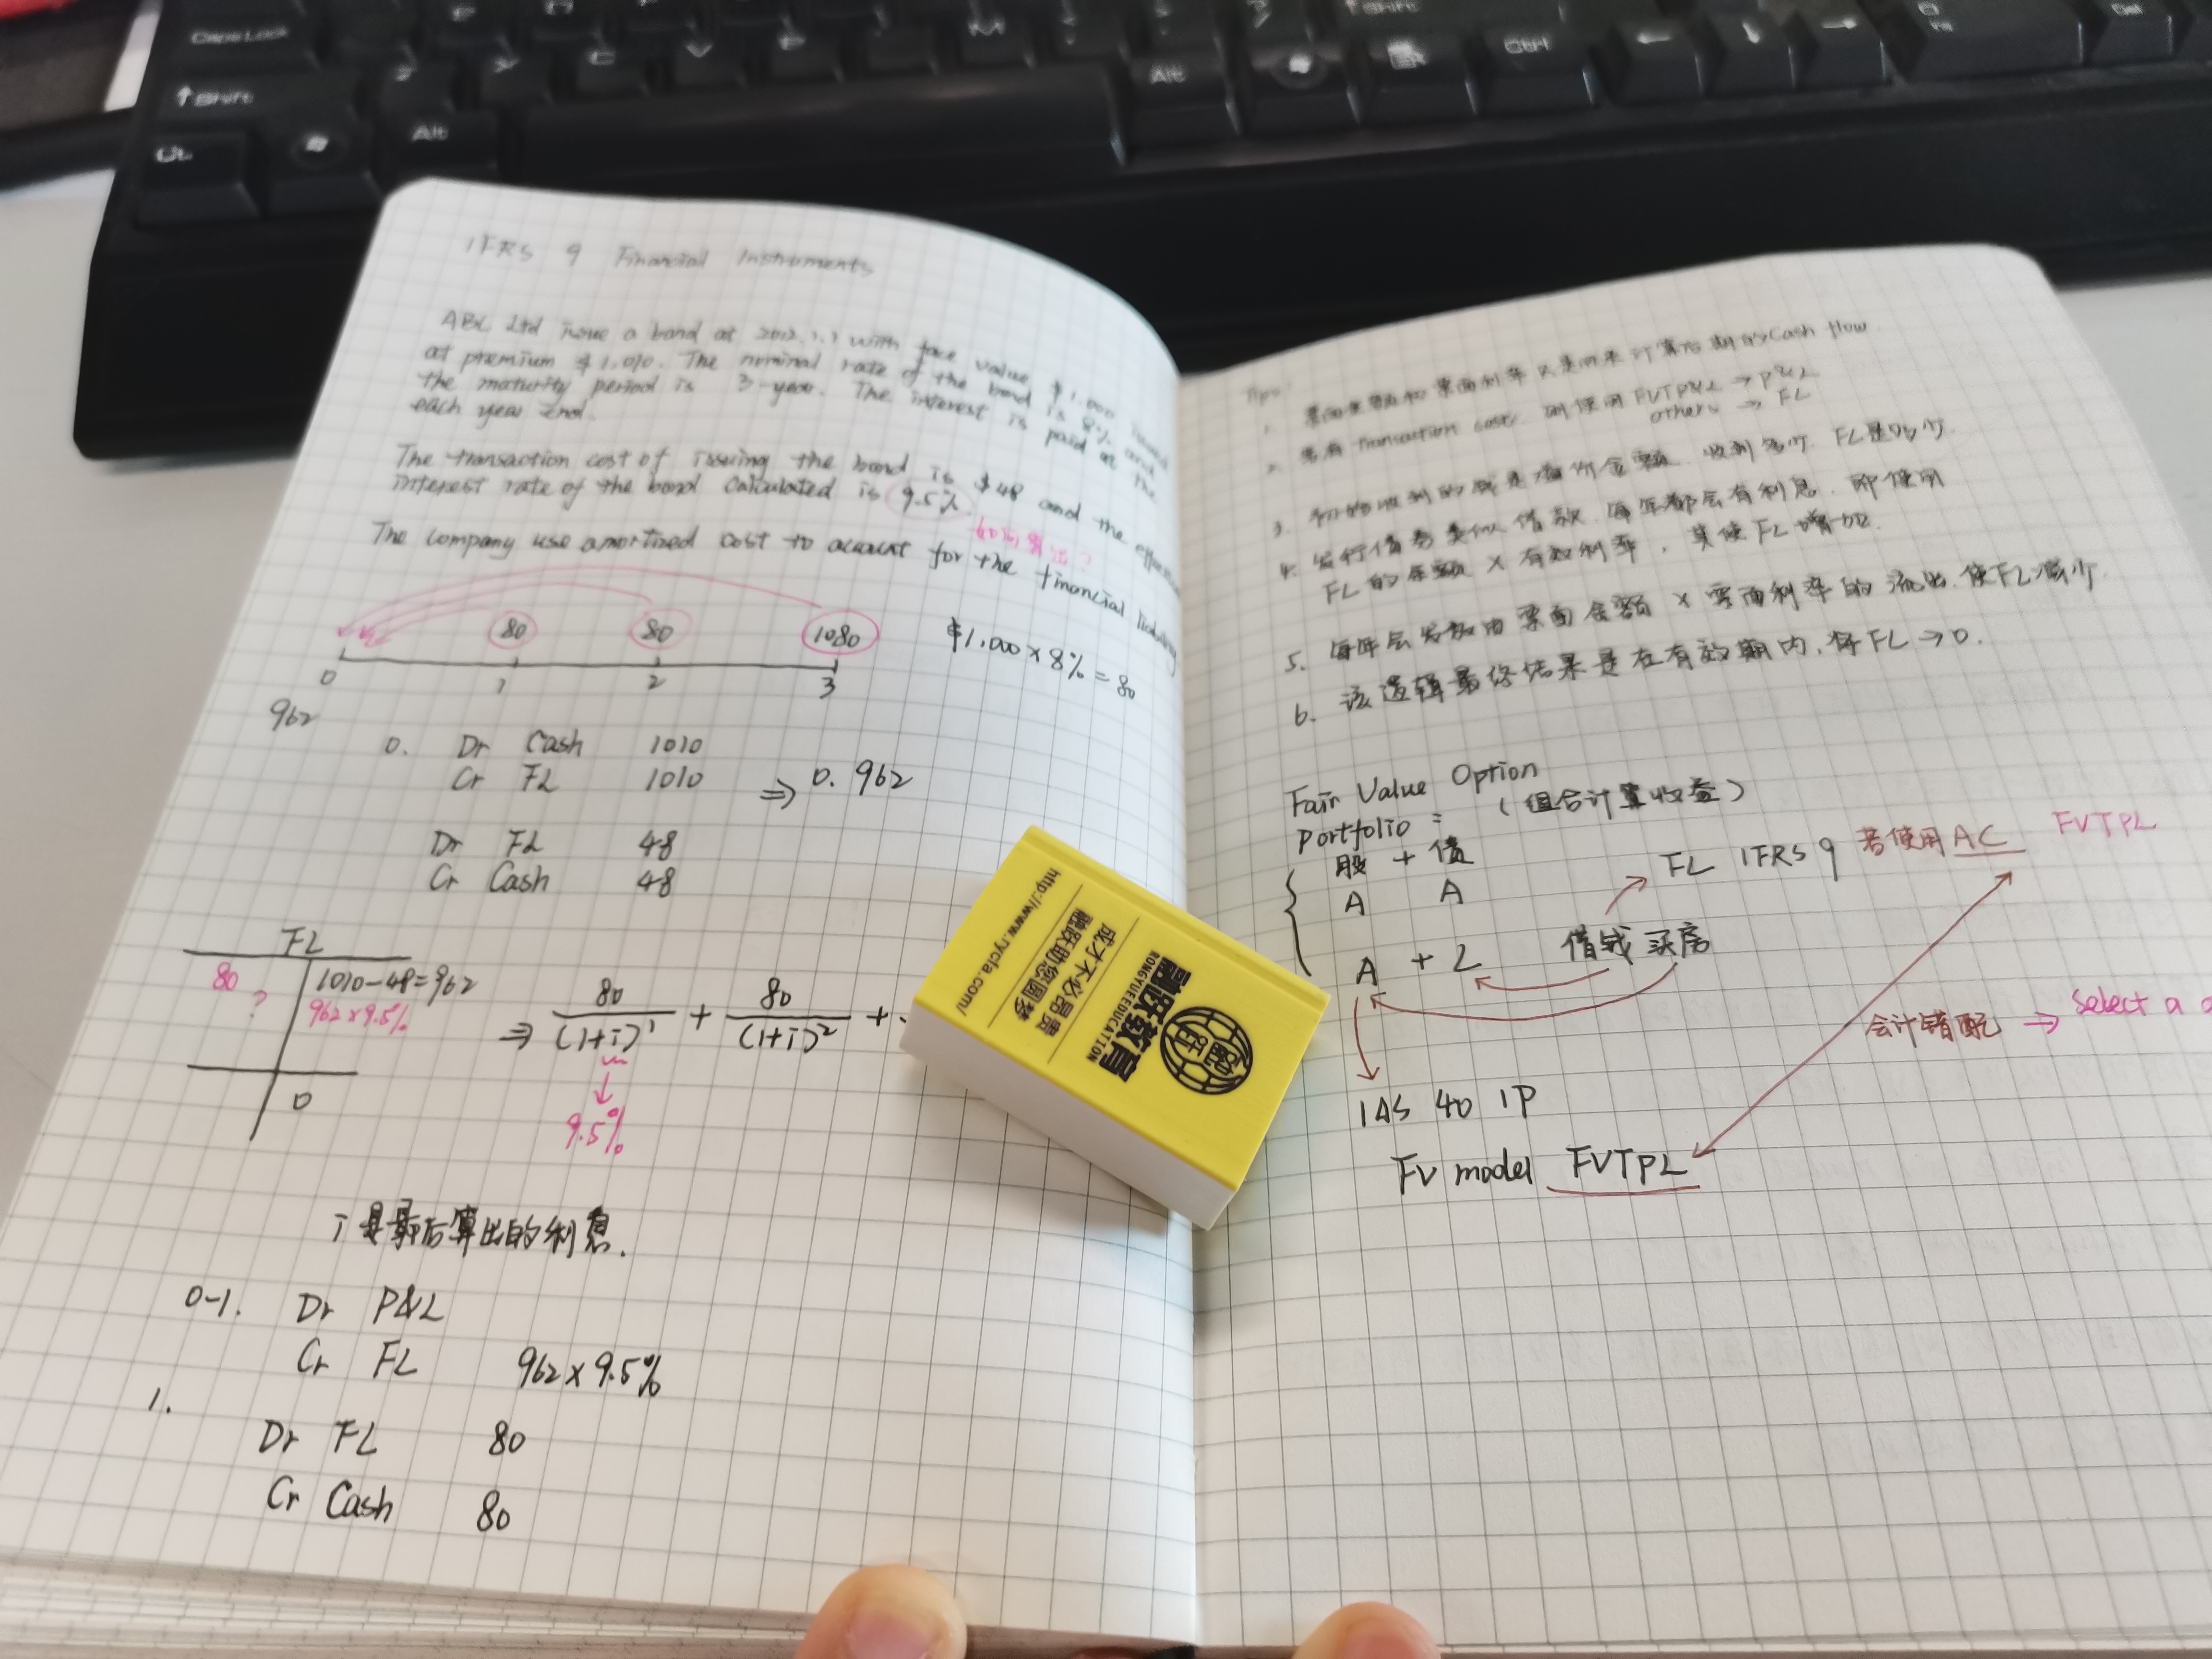 IFRS 9 Financial Instruments
ABC Ltd issue a bond at 2012.1.1 with face value $1,000 issued
at premium $1,010. The nominal rate of the bond is 8% and
the maturity period is 3-year. The interest is paid at the
each year end.
The transaction cost of issuing the bond is $48 and the effective
interest rate of the bond calculated is 9.5%.
The company use amortized cost to account for the financial liability
80
80
1080
$1,000×8%=80
0
1
2
3
962
0. Dr Cash 1010
Cr FL 1010
⇒ 0. 962
Dr FL 48
Cr Cash 48
FL
80
?
1010-48=962
962×9.5%
0
⇒ 80/(1+i)¹ + 80/(1+i)² +
9.5%
i是最后算出的利息.
0-1. Dr P&L
Cr FL 962×9.5%
1.
Dr FL 80
Cr Cash 80
Tips:
1. 票面金额和票面利率只是用来计算后期的Cash flow
2. 若有transaction cost. 则使用FVTP&L → P&L
others → FL
3. 收到的钱是 金额. 收到多少. FL是多少.
4. 发行债券类似借款. 每年都会有利息. 即使用
FL的余额×有效利率, 其使FL增加.
5. 每年会发放由票面金额×票面利率的流出. 使FL减少.
6. 该逻辑最终结果是在有效期内, 将FL→0.
Fair Value Option
portfolio: (组合计算收益)
股 + 债
A A
A + L
借钱买房
FL IFRS 9 若使用AC FVTPL
会计错配 ⇒ Select a
IAS 40 IP
FV model FVTPL
融跃教育
RONGYUEEDUCATION
成才不必昂贵
融跃助您圆梦
http://www.rycfa.com/
Caps Lock
↑Shift
Alt
Alt
Ctrl
↑Shift
Del